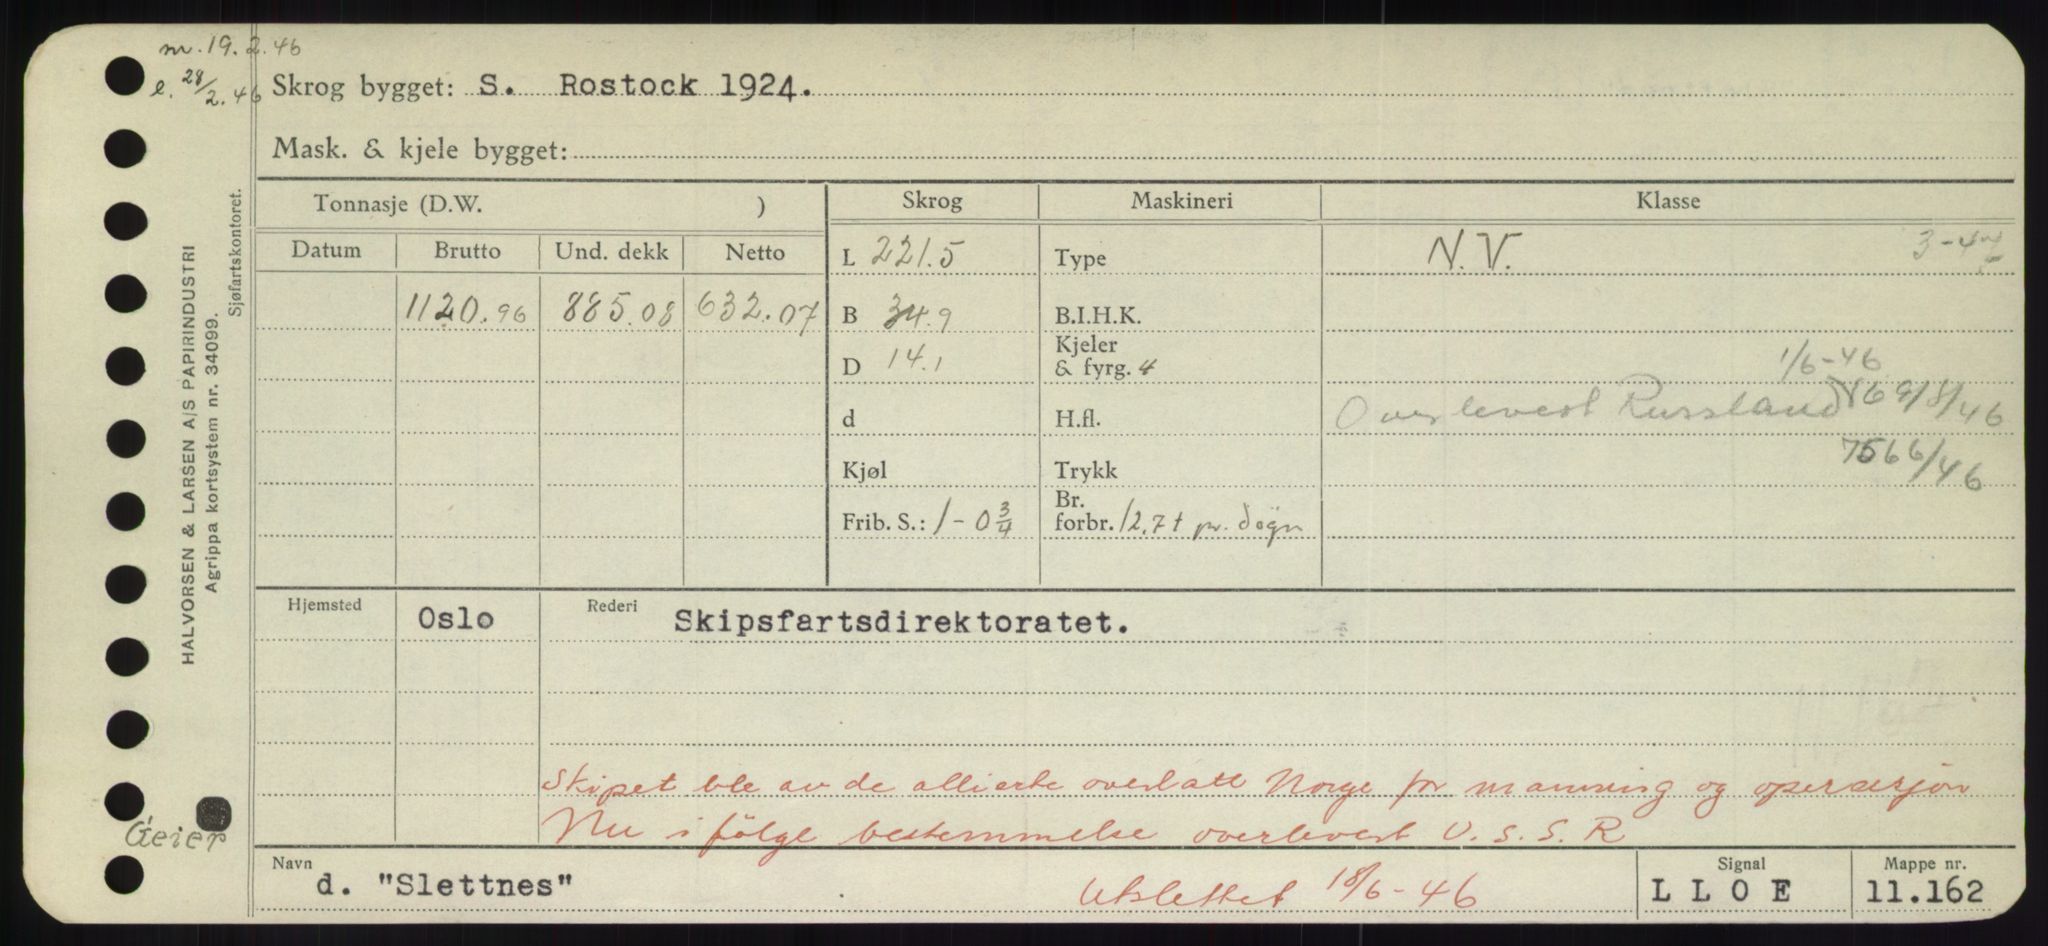 m. 19.2.46
e. 28/2.46
Skrog bygget: S. Rostock 1924.
Mask. & kjele bygget:
Tonnasje (D.W. ) Skrog Maskineri Klasse
Datum Brutto Und. dekk Netto L 221.5 Type N.V. 3-47
1120.96 885.08 632.07 B 34.9 B.I.H.K.
D 14.1 Kjeler & fyrg. 4 1/6-46
d H.fl. Overlevert Russland 69/8/46
Kjøl Trykk 7566/46
Frib. S.: 1-0 3/4 Br. forbr. 12,7 t pr. døgn
Hjemsted Oslo Rederi Skipsfartsdirektoratet.
Skipet ble av de allierte overlatt Norge for manning og operasjon
Nu i følge bestemmelse overlevert U.S.S.R
Navn d. "Slettnes" Utslettet 18/6-46 Signal LLOE Mappe nr. 11.162
Geier
HALVORSEN & LARSEN A/S PAPIRINDUSTRI
Agrippa kortsystem nr. 34099.
Sjøfartskontoret.